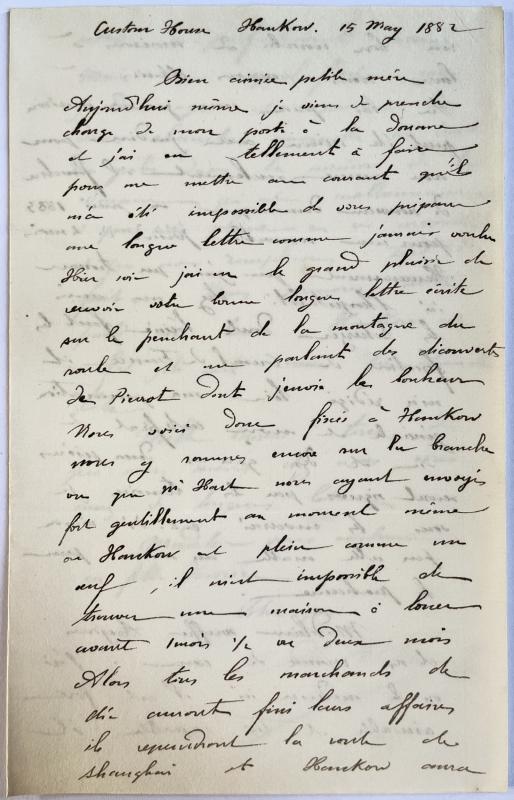 Custom House Hankow. 15 May 1882
Bien aimée petite mère
Aujourd'hui même je viens de prendre
charge de mon poste à la douane
et j'ai eu tellement à faire
pour me mettre au courant qu'il
m'a été impossible de vous préparer
une longue lettre comme j'aurais voulu
Hier soir j'ai eu le grand plaisir de
recevoir votre bonne longue lettre écrite
sur le penchant de la montagne du
roule et me parlant des découvertes
de Pierrot dont j'envie le bonheur
Nous voici donc fixés à Hankow
nous y sommes encore sur la branche
vu que Mr Hart nous ayant envoyés
fort gentillement au moment même
où Hankow est plein comme un
œuf, il m'est impossible de
trouver une maison à louer
avant 1 mois 1/2 ou deux mois
Alors tous les marchands de
thé auront fini leurs affaires
ils reprendront la route de
Shanghai et Hankow aura